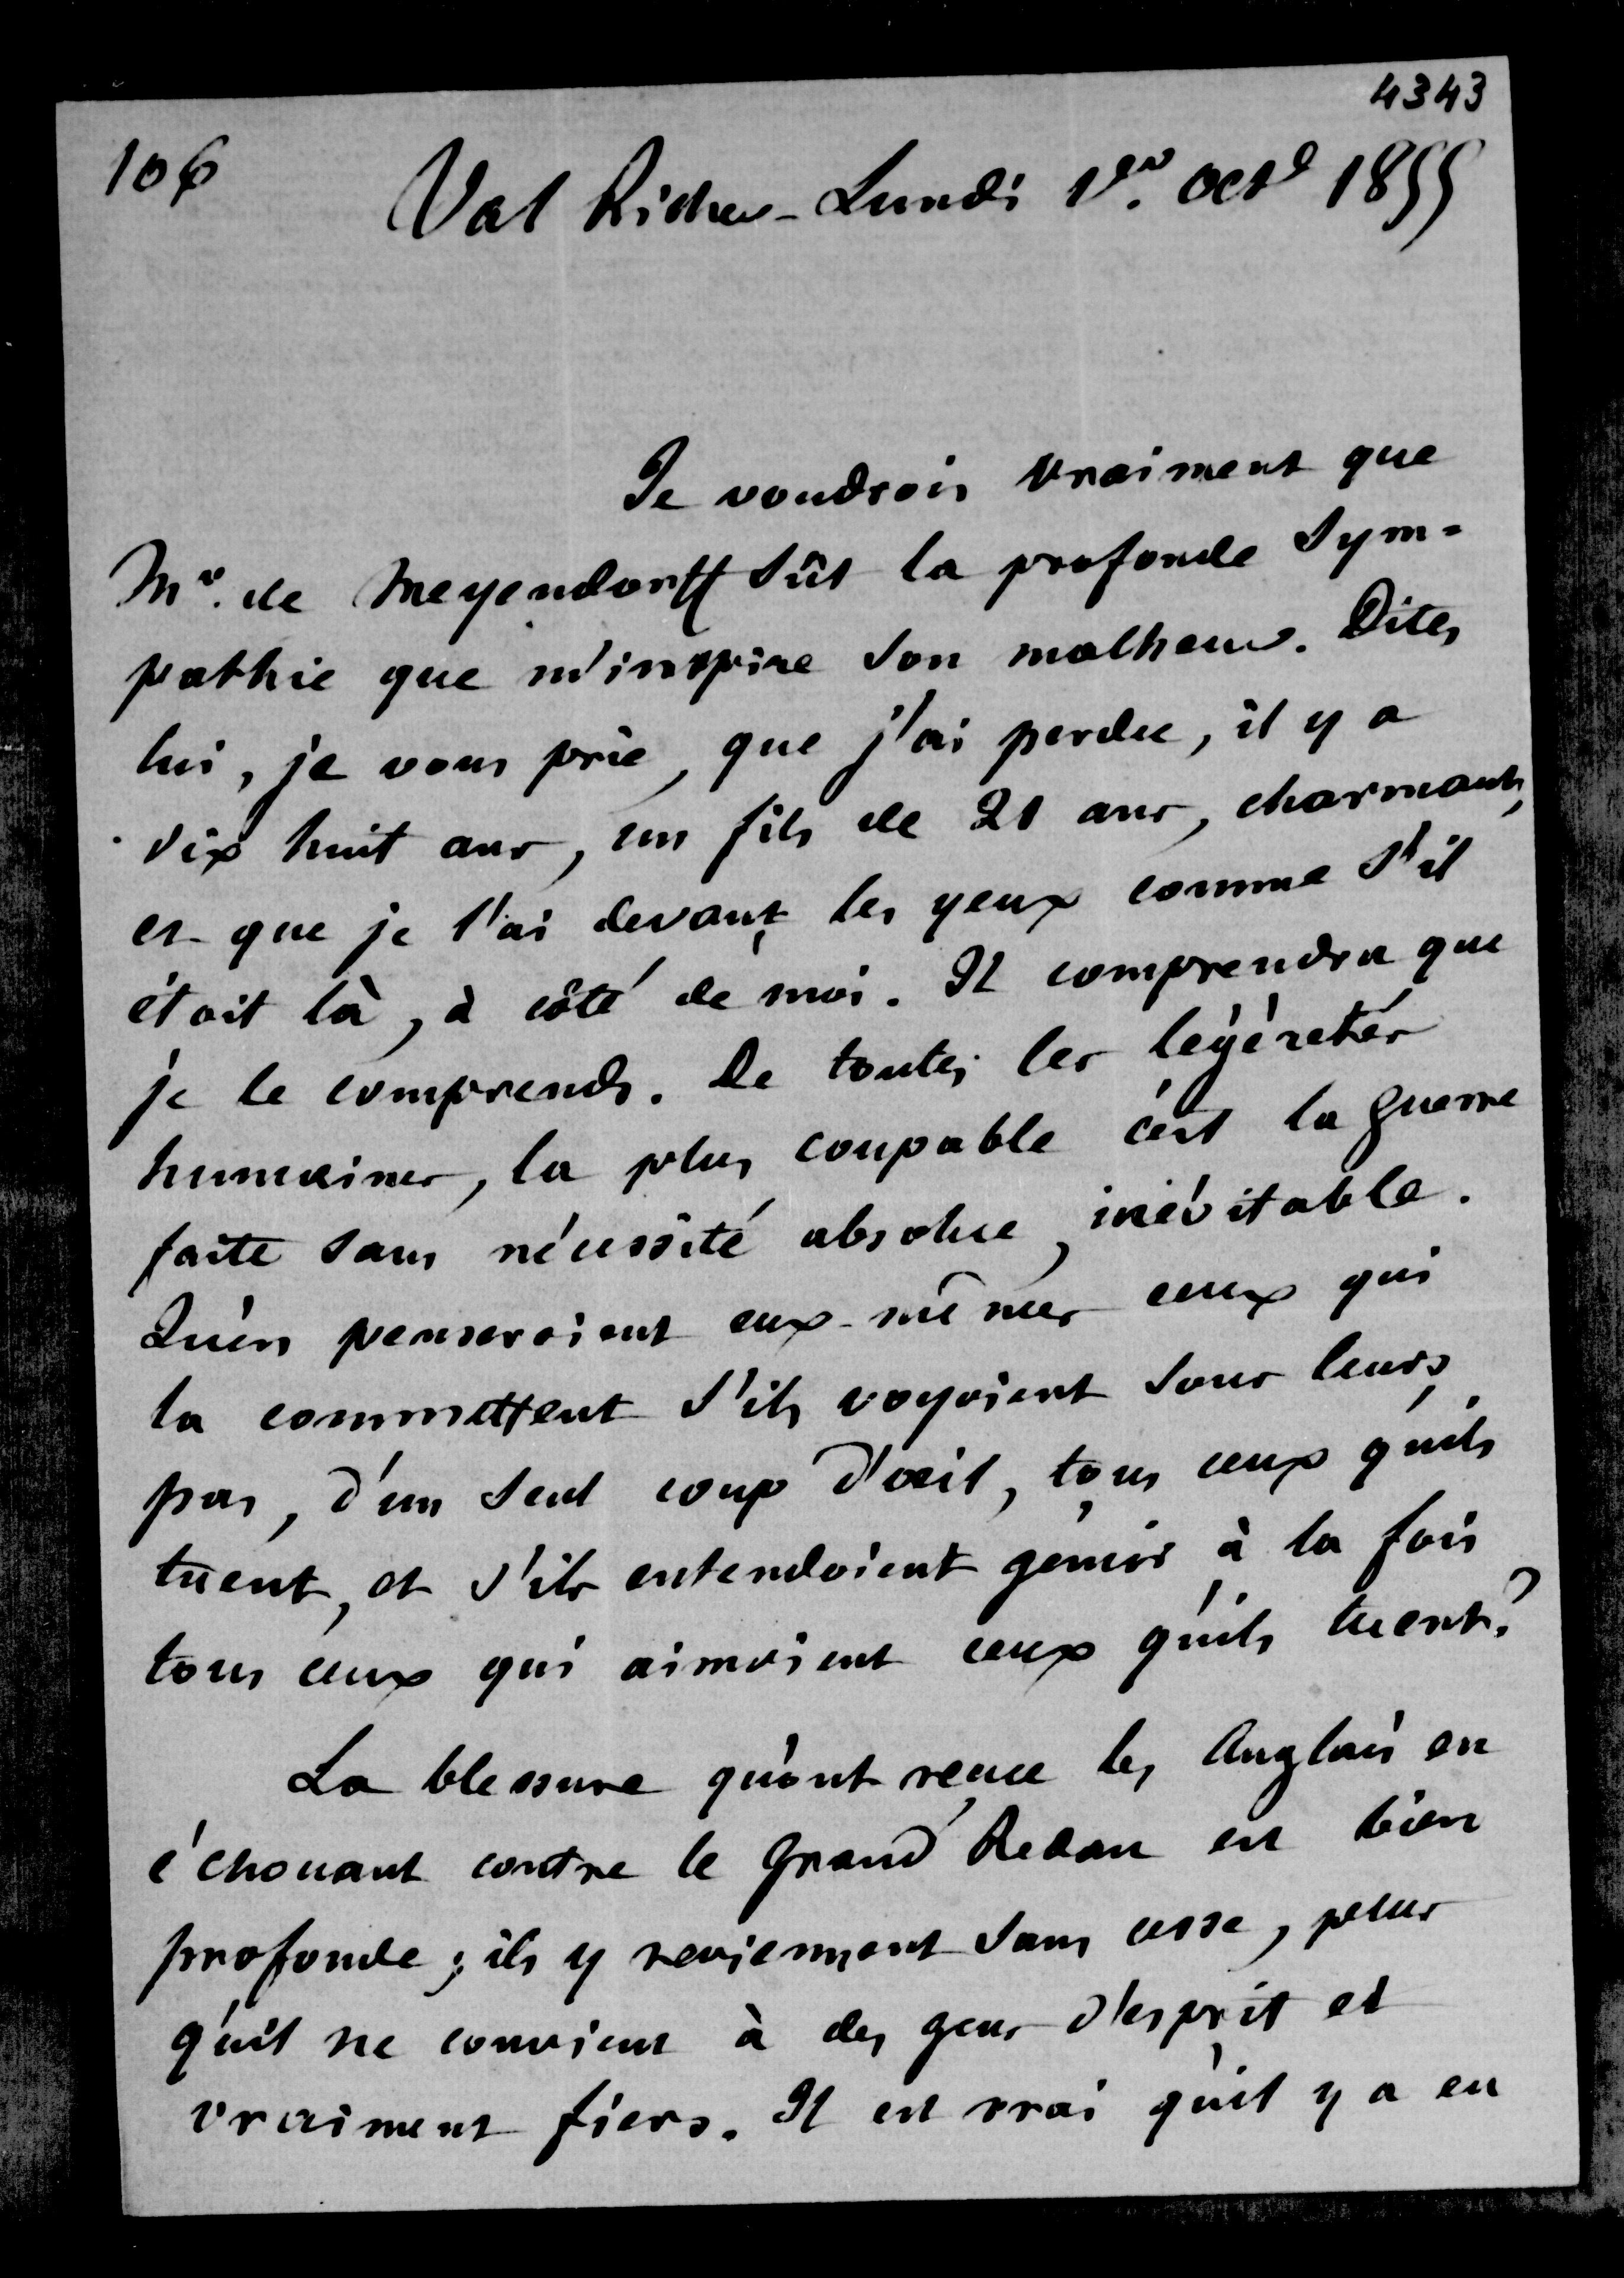 4343
106
Val Richer - Lundi 1er. oct. 1855
Je voudrois vraiment que
Mr. de Meyendorff sût la profonde sym=
pathie que m'inspire son malheur. Dites
lui, je vous prie, que j'ai perdu, il y a
dix huit ans, un fils de 21 ans, charmant,
et que je l'ai devant les yeux comme s'il
étoit là, à côté de moi. Il comprendra que
je le comprends. De toutes les légèretés
humaines, la plus coupable c'est la guerre
faite sans nécessité absolue, inévitable.
Qu'en penseroient eux-mêmes ceux qui
la commettent s'ils voyoient sous leurs
pas, d'un seul coup d'oeil, tous ceux qu'ils
tuent, et s'ils entendoient gémir à la fois
tous ceux qui aimoient ceux qu'ils tuent?
La blessure qu'ont reçue les Anglais en
échouant contre le grand Redan est bien
profonde; ils y reviennent sans cesse, plus
qu'il ne convient à des gens d'esprit et
vraiment fiers. Il est vrai qu'il y a eu